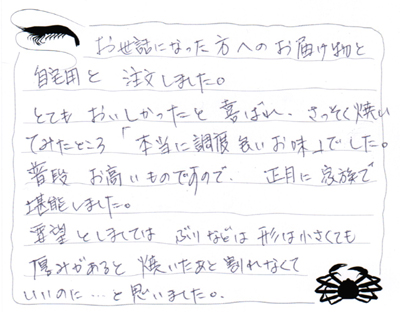 お世話になった方へのお届け物と
自宅用と 注文しました。
とても おいしかったと 喜ばれ、さっそく焼い
てみたところ「本当に調度良いお味」でした。
普段 お高いものですので、 正月に家族で
堪能しました。
要望としましては ぶりなどは 形は小さくても
厚みがあると 焼いたあと割れなくて
いいのに…と思いました。